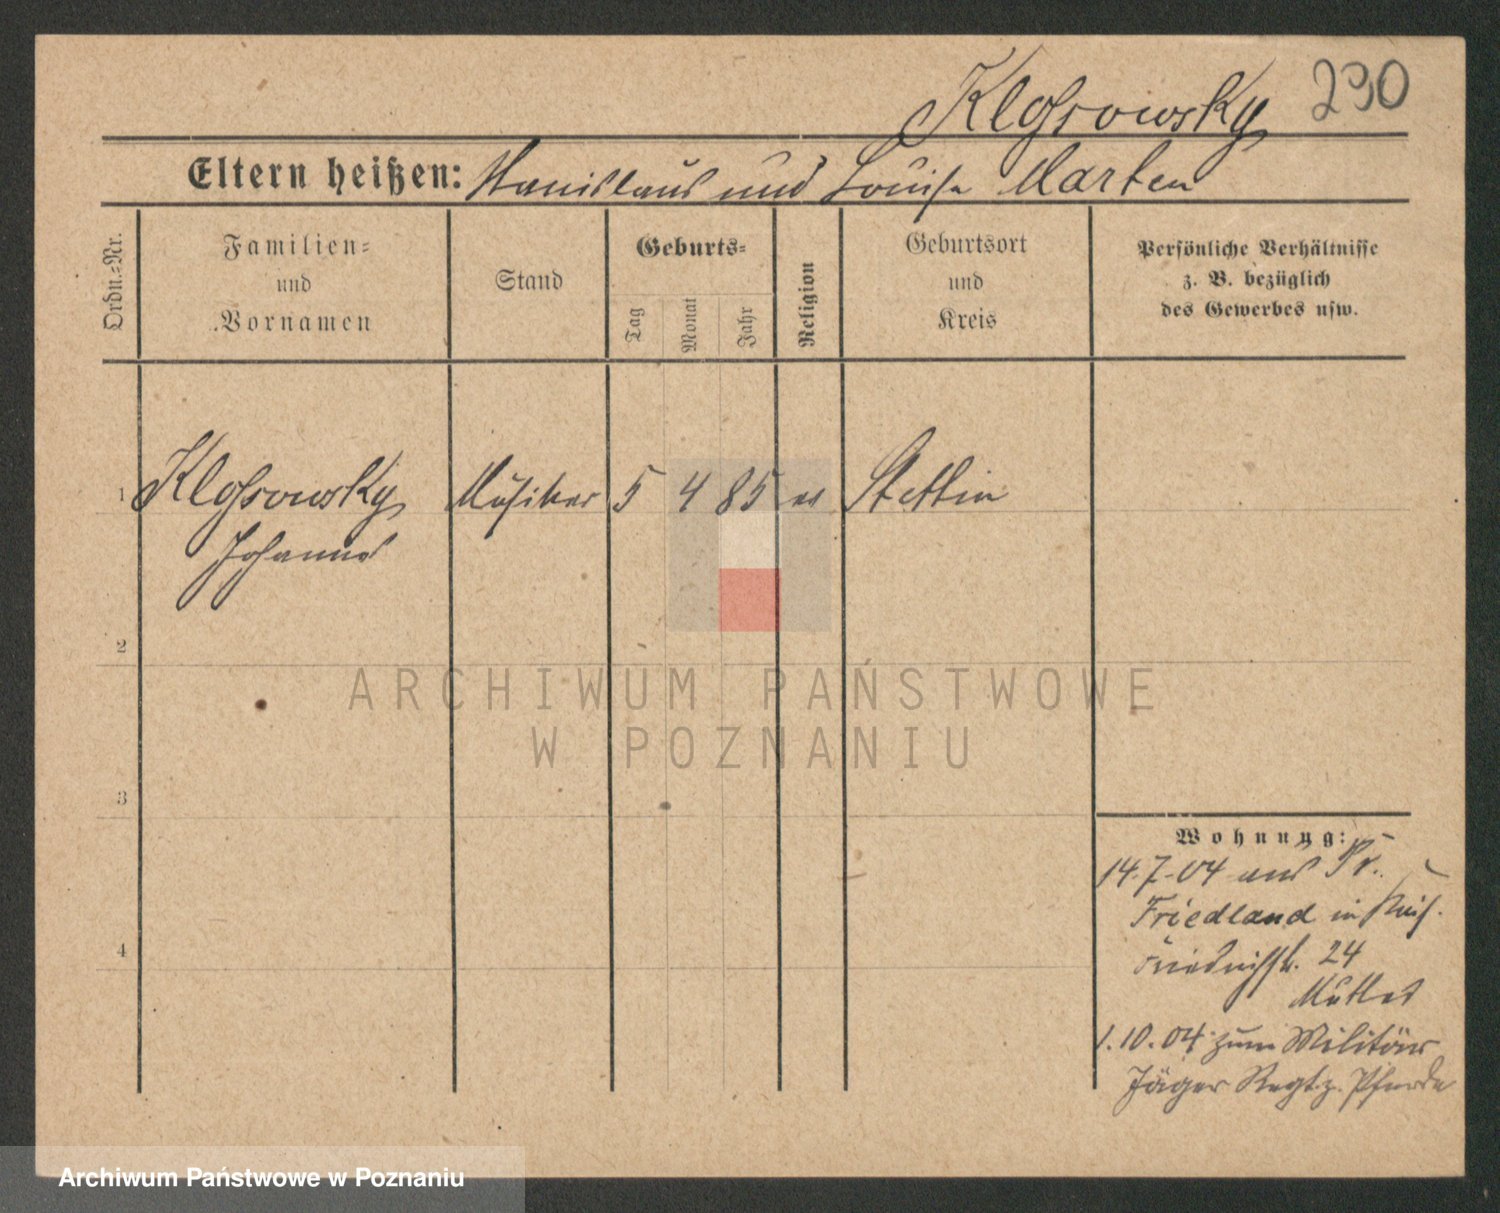 Klossowsky 290
Eltern heißen: Stanislaus und Louise Marten
Ordn.=Nr.
Familien=
und
Vornamen
Stand
Geburts=
Tag
Monat
Jahr
Religion
Geburtsort
und
Kreis
Persönliche Verhältnisse
z. B. bezüglich
des Gewerbes usw.
1 Klossowsky Musiker 5 4 85 ev Stettin
Johannes
2
3
4
Wohnung:
14.7.04 aus Pr.
Friedland in
Friedrichstr. 24
1.10.04 zum Militär
Jäger Regt. z. Pferde
ARCHIWUM PAŃSTWOWE
W POZNANIU
Archiwum Państwowe w Poznaniu